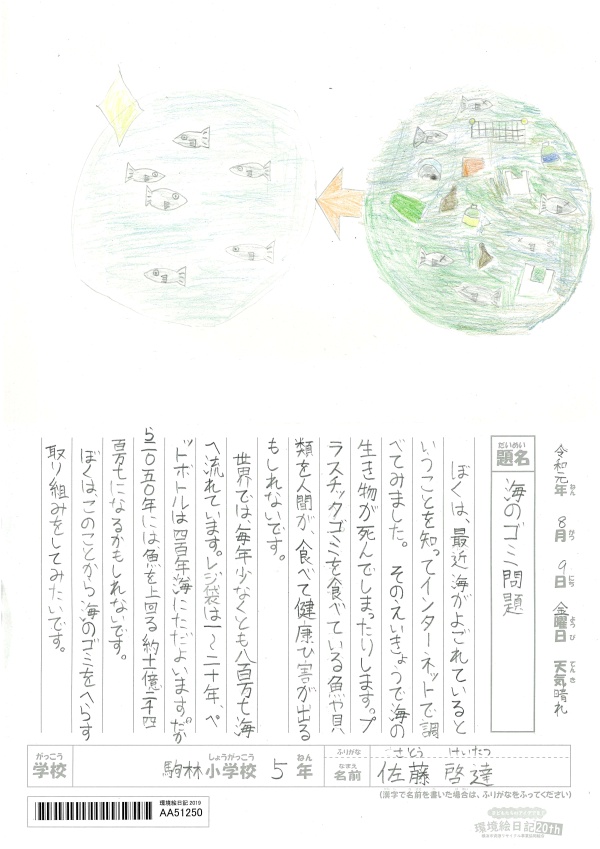 令和元年 8月 9日 金曜日 天気 晴れ
ねん がつ にち ようび てんき
だいめい
題名 海のゴミ問題
ぼくは、最近海がよごれていると
いうことを知ってインターネットで調
べてみました。そのえいきょうで海の
生き物が死んでしまったりします。プ
ラスチックゴミを食べている魚や貝
類を人間が、食べて健康ひ害が出る
もしれないです。
世界では、毎年少なくとも八百万t海
へ流れています。レジ袋は一〜二十年、ペ
ットボトルは四百年海にただよいます。だか
ら二〇五〇年には魚を上回る約七億二千四
百万tになるかもしれないです。
ぼくは、このことから海のゴミをへらす
取り組みをしてみたいです。
がっこう しょうがっこう ねん ふりがな さとう けいたつ
学校 駒林小学校 5年 なまえ 名前 佐藤 啓達
(漢字で名前を書いた場合は、ふりがなをふってください)
環境絵日記 2019
AA51250
環境絵日記20th